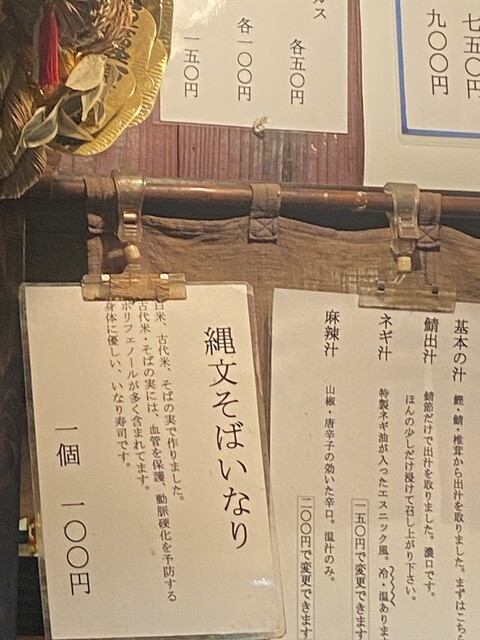 七五〇円
九〇〇円
ガス
各五〇円
各一〇〇円
一五〇円
基本の汁 鰹・鯖・椎茸から出汁を取りました。まずはこち
鯖出汁 鯖節だけで出汁を取りました。濃口です。
ほんの少しだけ浸けて召し上がり下さい。
ネギ汁 特製ネギ油が入ったエスニック風。冷・温ありま
一五〇円で変更できます
麻辣汁 山椒・唐辛子の効いた辛口。温汁のみ。
二〇〇円で変更できます
縄文そばいなり
白米、古代米、そばの実で作りました。
古代米・そばの実には、血管を保護、動脈硬化を予防する
ポリフェノールが多く含まれてます。
身体に優しい、いなり寿司です。
一個 一〇〇円